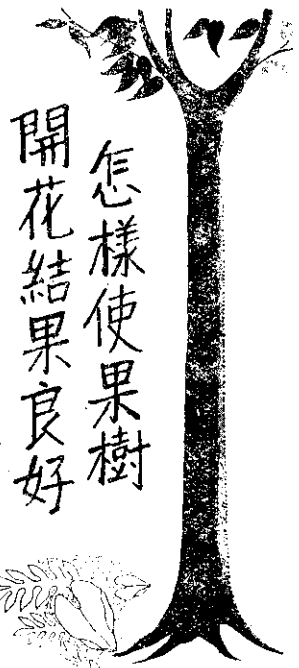 怎樣使果樹
開花結果良好